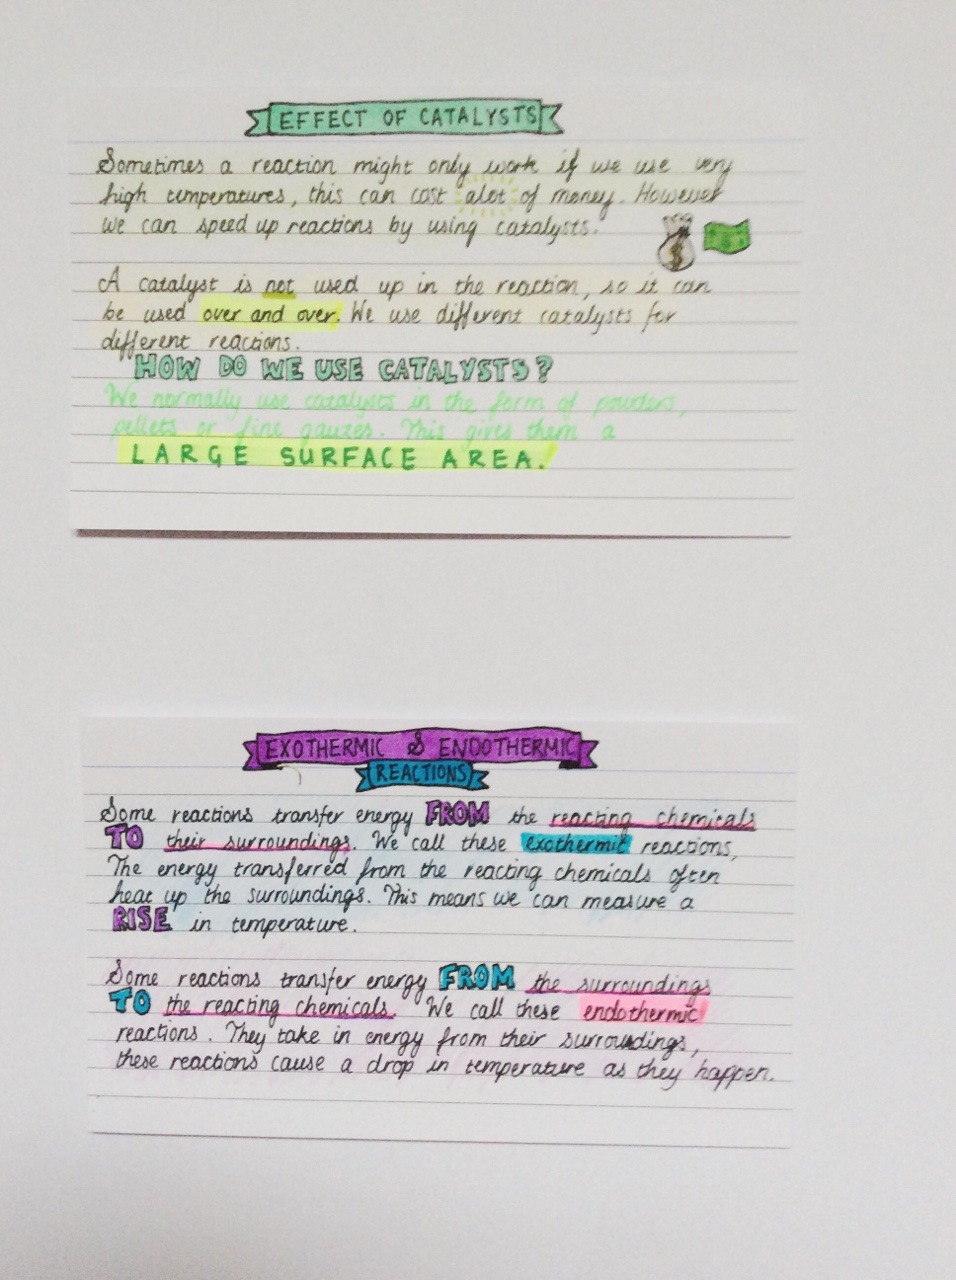 EFFECT OF CATALYSTS
Sometimes a reaction might only work if we use very
high temperatures, this can cost alot of money. However
we can speed up reactions by using catalysts.
$
A catalyst is not used up in the reaction, so it can
be used over and over. We use different catalysts for
different reactions.
HOW DO WE USE CATALYSTS?
We normally use catalysts in the form of powders,
pellets or fine gauzes. This gives them a
LARGE SURFACE AREA.
EXOTHERMIC & ENDOTHERMIC
REACTIONS
Some reactions transfer energy FROM the reacting chemicals
TO their surroundings. We call these exothermic reactions,
The energy transferred from the reacting chemicals often
heat up the surroundings. This means we can measure a
RISE in temperature.
Some reactions transfer energy FROM the surroundings
TO the reacting chemicals. We call these endothermic
reactions. They take in energy from their surroundings,
these reactions cause a drop in temperature as they happen.